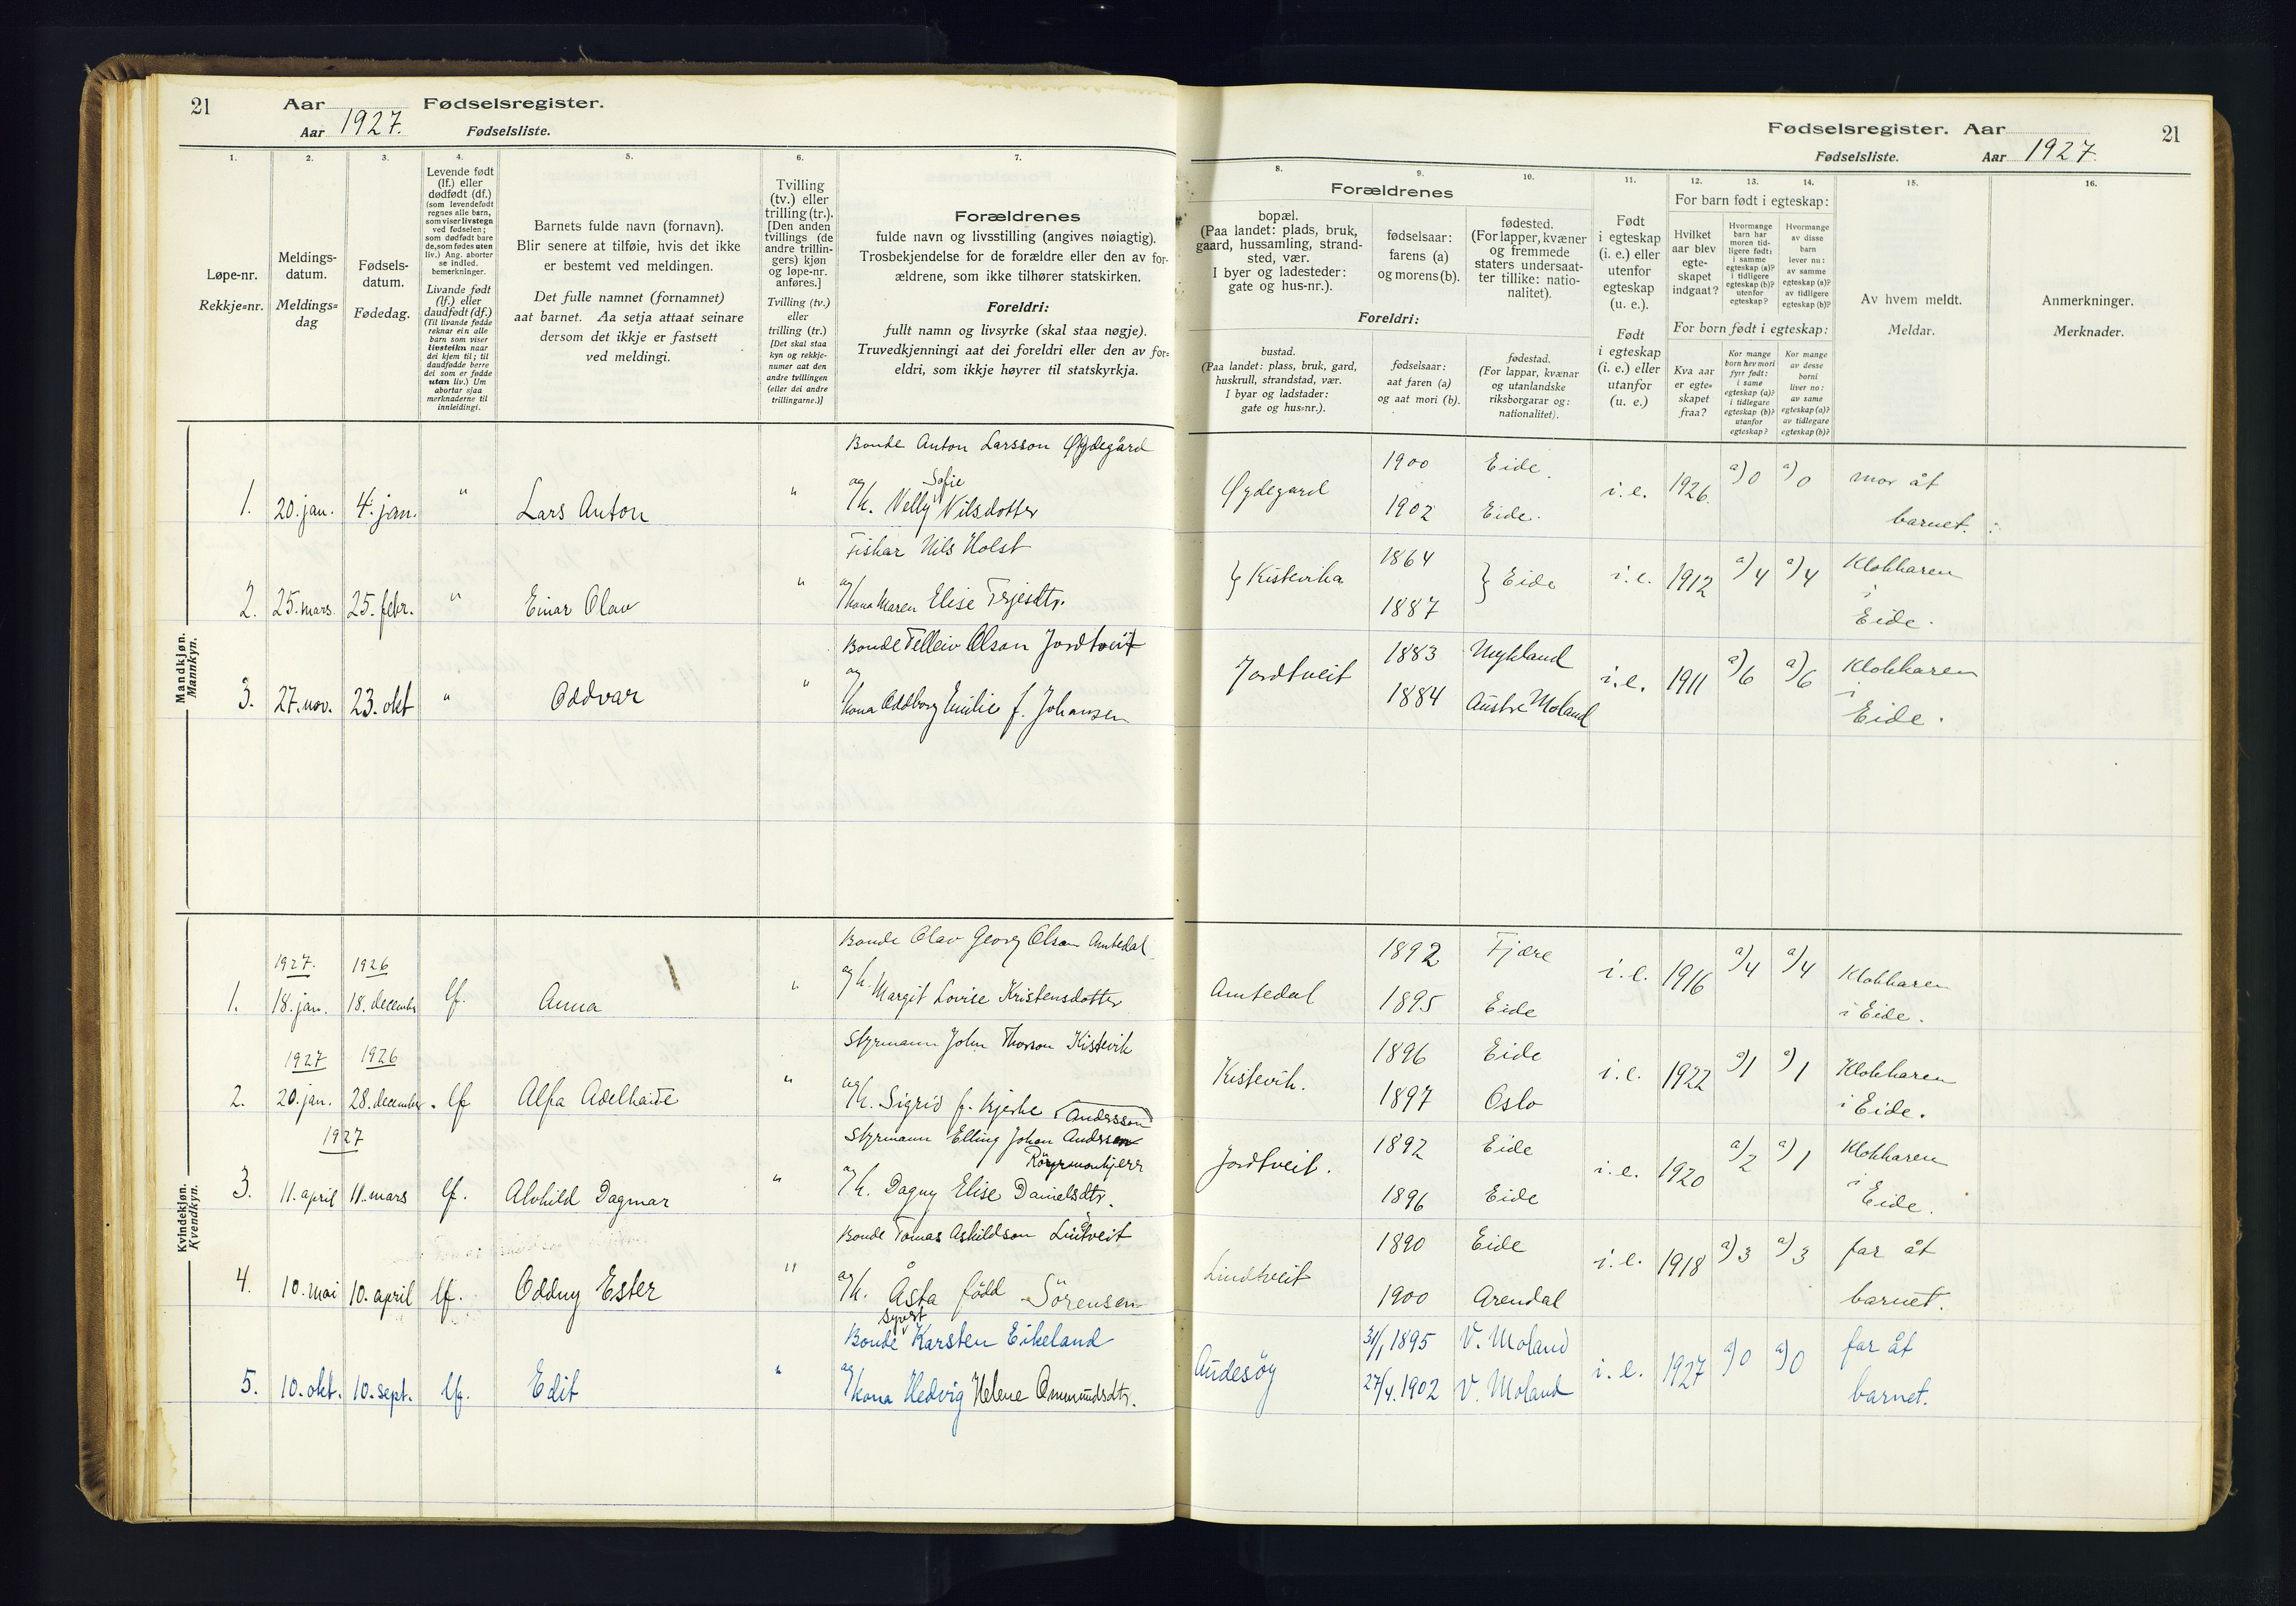 21
Aar
Fødselsregister.
Aar 1927.
Fødselsliste.
1.
2.
3.
4.
5.
6.
7.
Løpe-nr.
Rekkje=nr.
Meldings-
datum.
Meldings=
dag
Fødsels-
datum.
Fødedag.
Levende født
(lf.) eller
dødfødt (df.)
(som levendefødt
regnes alle barn,
som viser livstegn
ved fødselen;
som dødfødt bare
de, som fødes uten
liv.) Ang. aborter
se indled.
bemerkninger.
Livande født
(lf.) eller
daudfødt (df.)
(Til livande fødde
reknar ein alle
barn som viser
livsteikn naar
dei kjem til; til
daudfødde berre
dei som er fødde
utan liv.) Um
abortar sjaa
merknaderne til
innleidingi.
Barnets fulde navn (fornavn).
Blir senere at tilføie, hvis det ikke
er bestemt ved meldingen.
Det fulle namnet (fornamnet)
aat barnet. Aa setja attaat seinare
dersom det ikkje er fastsett
ved meldingi.
Tvilling
(tv.) eller
trilling (tr.).
[Den anden
tvillings (de
andre trillin-
gers) kjøn
og løpe-nr.
anføres.]
Tvilling (tv.)
eller
trilling (tr.)
[Det skal staa
kyn og rekkje-
numer aat den
andre tvillingen
(eller dei andre
trillingarne.)]
Forældrenes
fulde navn og livsstilling (angives nøiagtig).
Trosbekjendelse for de forældre eller den av for-
ældrene, som ikke tilhører statskirken.
Foreldri:
fullt namn og livsyrke (skal staa nøgje).
Truvedkjenningi aat dei foreldri eller den av for=
eldri, som ikkje høyrer til statskyrkja.
Mandkjøn.
Mannkyn.
Bonde Anton Larsson Øydegård
Sofie
1. 20. jan. 4. jan. " Lars Anton " og k. Nelly Nilsdotter
Fiskar Nils Holst
2. 25. mars 25. febr. " Einar Olav " og kona Maren Elise Terjesdtr.
Bonde Telleiv Olson Jordtveit
3. 27. nov. 23. okt " Oddvar " og kona Oddborg Emilie f. Johansen
Kvindekjøn.
Kvendkyn.
Bonde Olav Georg Olson Amtedal
1927. 1926
1. 18. jan. 18. december lf. Anna " og k. Margit Lovise Kristensdotter
Styrmann John Thorson Kistevik
1927 1926
2. 20. jan. 28. december. lf Alfa Adelhaide " og k. Sigrid f. Bjerke
Anderssen
Styrmann Elling Johan Anderssen
1927
3. 11. april 11. mars lf. Alvhild Dagmar " og k. Dagny Elise Danielsdtr.
Bonde Tomas Askildson Lindtveit
4. 10. mai 10. april lf. Oddny Ester " og k. Åsta född Sörensen
Syvert
Bonde Karsten Eikeland
5. 10. okt. 10. sept. lf. Edit " og kona Hedvig Helene Ommundsdtr.
Fødselsregister. Aar
21
Fødselsliste.
Aar 1927.
8.
9.
10.
11.
12.
13.
14.
15.
16.
Forældrenes
bopæl.
(Paa landet: plads, bruk,
gaard, hussamling, strand-
sted, vær.
I byer og ladesteder:
gate og hus-nr.).
fødselsaar:
farens (a)
og morens (b).
fødested.
(For lapper, kvæner
og fremmede
staters undersaat-
ter tillike: natio-
nalitet).
Foreldri:
bustad.
(Paa landet: plass, bruk, gard,
huskrull, strandstad, vær.
I byar og ladstader:
gate og hus=nr.).
fødselsaar:
aat faren (a)
og aat mori (b).
fødestad.
(For lappar, kvænar
og utanlandske
riksborgarar og:
nationalitet).
Født
i egteskap
(i. e.) eller
utenfor
egteskap
(u. e.).
Født
i egteskap
(i. e.) eller
utanfor
(u. e.)
For barn født i egteskap:
Hvilket
aar blev
egte-
skapet
indgaat?
Hvormange
barn har
moren tid-
ligere født:
i samme
egteskap (a)?
i tidligere
egteskap (b)?
utenfor
egteskap?
Hvormange
av disse
barn
lever nu:
av samme
egteskap (a)?
av tidligere
egteskap (b)?
For born født i egteskap:
Kva aar
er egte=
skapet
fraa?
Kor mange
born hev mori
fyrr født:
i same
egteskap (a)?
i tidlegare
egteskap (b)?
utanfor
egteskap?
Kor mange
av desse
borni
liver no:
av same
egteskap (a)?
av tidlegare
egteskap (b)?
Av hvem meldt.
Meldar.
Anmerkninger.
Merknader.
Øydegard 1900 Eide. i. e. 1926. a) 0 a) 0 mor åt
1902 Eide. barnet.
} Kistevika 1864 } Eide i. e. 1912 a) 4 a) 4 Klokkaren
i
1887 Eide.
Jordtveit 1883 Mykland i. e. 1911 a) 6 a) 6 Klokkaren
i
1884 Austre Moland Eide.
Amtedal 1892 Fjære i. e. 1916 a) 4 a) 4 Klokkaren
1895 Eide i Eide.
Kistevik. 1896 Eide i. e. 1922 a) 1 a) 1 Klokkaren
1897 Oslo i Eide.
Jordtveit. 1892 Eide i. e. 1920 a) 2 a) 1 Klokkaren
i
1896 Eide Eide.
Lindtveit 1890 Eide i. e. 1918 a) 3 a) 3 far åt
1900 Arendal barnet.
Audesöy 31/1 1895 V. Moland i. e. 1927 a) 0 a) 0 far åt
27/4. 1902 V. Moland barnet.